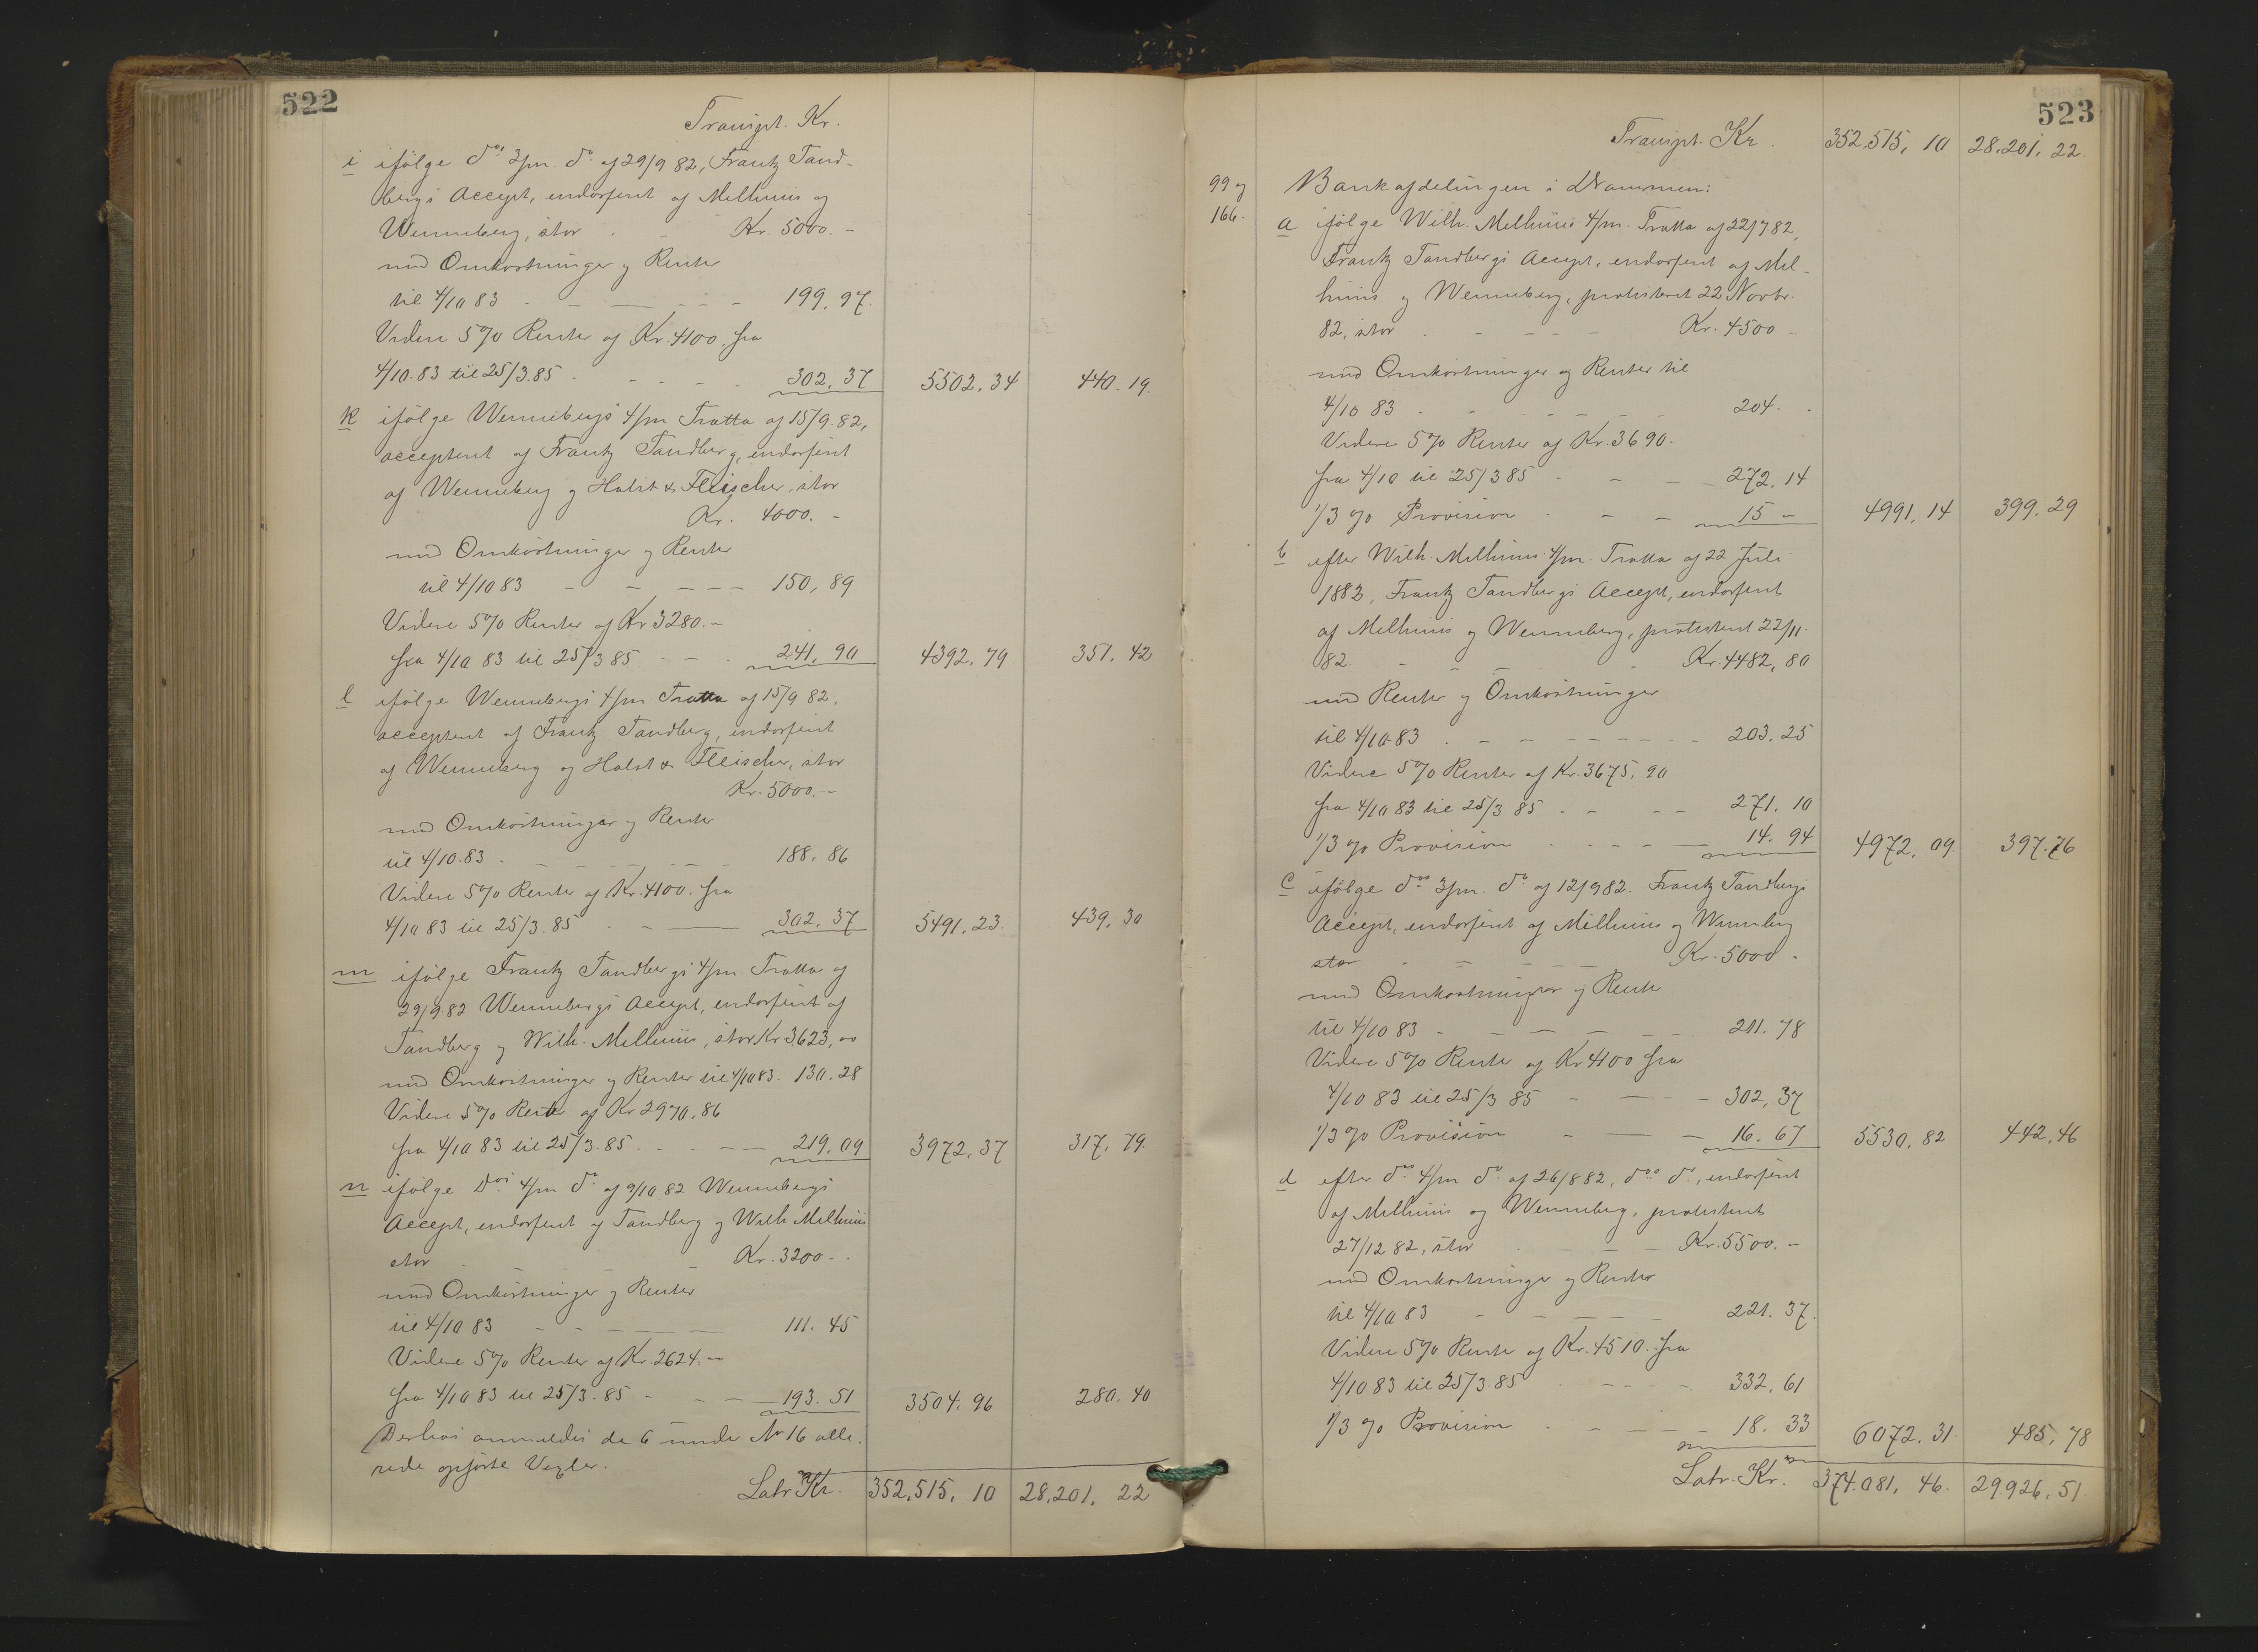 522
Transpt. Kr.
i ifölge do's 3/m. do. af 29/9 82, Frantz Tand-
bergs Accept, endorsent af Melhuus og
Wenneberg, stor Kr. 5000.-
med Omkostninger og Renter
til 4/10 83 - - - 199.97.
Videre 5% Renter af Kr. 4100. fra
4/10.83 til 25/3.85 - - - 302.37 5502.34 440.19.
k ifölge Wennebergs 4/m Tratta af 15/9.82,
acceptent af Frantz Tandberg, endorsent
af Wenneberg og Holst & Fleischer, stor
Kr. 4000.-
med Omkostninger og Renter
til 4/10 83 - - - 150,89
Videre 5% Renter af Kr 3280.-
fra 4/10 83 til 25/3 85 - - 241.90 4392.79 351.42
l ifölge Wennebergs 4/m Tratta af 15/9 82,
acceptent af Frantz Tandberg, endorsent
af Wenneberg og Holst & Fleischer, stor
Kr. 5000.-
med Omkostninger og Renter
til 4/10.83 - - - 188.86
Videre 5% Renter af Kr. 4100. fra
4/10 83 til 25/3.85 - - 302.37 5491.23. 439.30
m ifölge Frantz Tandbergs 4/m. Tratta af
29/9.82 Wennebergs Accept, endorsent af
Tandberg og Wilh. Melhuus, stor Kr 3623,00
med Omkostninger og Renter til 4/10 83. 130.28
Videre 5% Rente af Kr 2970.86
fra 4/10 83 til 25/3.85. - - 219.09 3972.37 317.79.
n ifölge Do's 4/m do. af 9/10.82 Wennebergs
Accept, endorsent af Tandberg og Wilh Melhuus
stor Kr. 3200-.
med Omkostninger og Renter
til 4/10 83 - - - 111.45
Videre 5% Renter af Kr. 2624.-
fra 4/10 83 til 25/3.85 - - 193.51 3504.96 280.40
Derhos anmeldes de 6 under No 16 alle-
rede opförte Vexler.
Latr Kr. 352,515.10 28,201.22
523
Transpt. Kr. 352,515,10 28.201.22.
99 og
166.
Bankafdelingen i Drammen:
a ifölge Wilh. Melhuus 4/m. Tratta af 22/7 82,
Frantz Tandbergs Accept, endorsent af Mel-
huus og Wenneberg, protesteret 22 Novbr.
82, stor - - - Kr. 4500-
med Omkostninger og Renter til
4/10 83 - - - 204.
Videre 5% Renter af Kr. 3690.
fra 4/10 til 25/3 85 - - - 272.14
1/3 % Provision - - - 15- 4991,14 399.29
b efter Wilh. Melhuus 4/m. Tratta af 22 Juli
1882, Frantz Tandbergs Accept, endorsent
af Melhuus og Wenneberg, protesteret 22/11.
82. - - - Kr. 4482,80
med Renter og Omkostninger
til 4/10 83 - - - 203.25
Videre 5% Renter af Kr. 3675.90
fra 4/10 83 til 25/3.85 - - - 271.10
1/3 % Provision - - - 14.94 4972.09 397.76
c ifölge do's 3/m. do. af 12/9 82. Frantz Tandbergs
Accept, endorsent af Melhuus og Wenneberg
stor - - - Kr. 5000-
med Omkostninger og Rente
til 4/10 83 - - - 211.78
Videre 5% Rente af Kr 4100 fra
4/10 83 til 25/3 85 - - - 302,37
1/3 % Provision - - - 16.67 5530.82 442.46
d efter do's 4/m do. af 26/8 82, do's do., endorsent
af Melhuus og Wenneberg, protesteret
27/12 82, stor - - - Kr. 5500.-
med Omkostninger og Renter
til 4/10 83 - - - 221.37.
Videre 5% Renter af Kr. 4510.- fra
4/10 83 til 25/3.85 - - - 332.61
1/3 % Provision - - - 18.33 6072.31. 485,78
Latr. Kr. 374.081,46. 29.926.51.